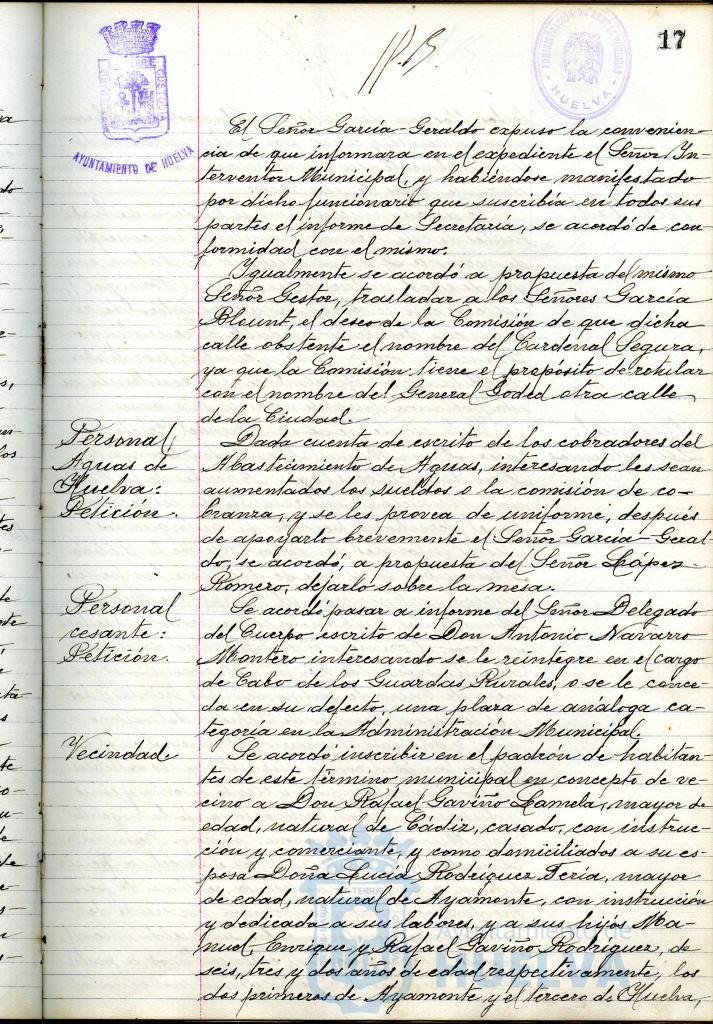 17
AYUNTAMIENTO DE HUELVA
HUELVA
El Señor García-Geraldo expuso la convenien-
cia de que informara en el expediente el Señor In-
terventor Municipal, y habiéndose manifestado
por dicho funcionario que suscribía en todos sus
partes el informe de Secretaría, se acordó de con-
formidad con el mismo.
Igualmente se acordó a propuesta del mismo
Señor Gestor, trasladar a los Señores García
Blount, el deseo de la Comisión de que dicha
calle obstente el nombre del Cardenal Segura,
ya que la Comisión tiene el propósito de rotular
con el nombre del General Goded otra calle
de la Ciudad.
Personal,
Aguas de
Huelva:
Petición.
Dada cuenta de escrito de los cobradores del
Abastecimiento de Aguas, interesando les sean
aumentados los sueldos o la comisión de co-
branza, y se les provea de uniforme, después
de apoyarlo brevemente el Señor García-Geral-
do, se acordó, a propuesta del Señor López-
Romero, dejarlo sobre la mesa.
Personal
cesante:
Petición.
Se acordó pasar a informe del Señor Delegado
del Cuerpo escrito de Don Antonio Navarro
Montero interesando se le reintegre en el cargo
de Cabo de los Guardas Rurales, o se le conce-
da en su defecto, una plaza de análoga ca-
tegoría en la Administración Municipal.
Vecindad.
Se acordó inscribir en el padrón de habitan-
tes de este término municipal en concepto de ve-
cino a Don Rafael Gaviño Lamela, mayor de
edad, natural de Cádiz, casado, con instruc-
ción y comerciante, y como domiciliados a su es-
posa Doña Lucía Rodríguez Feria, mayor
de edad, natural de Ayamonte, con instrucción
y dedicada a sus labores, y a sus hijos Ma-
nuel, Enrique y Rafael Gaviño Rodríguez, de
seis, tres y dos años de edad respectivamente, los
dos primeros de Ayamonte y el tercero de Huelva,
Ayuntamiento de
HUELVA